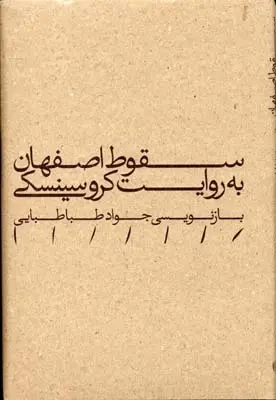 سقوط اصفهان
به روایت کروسینسکی
بازنویسی جواد طباطبایی